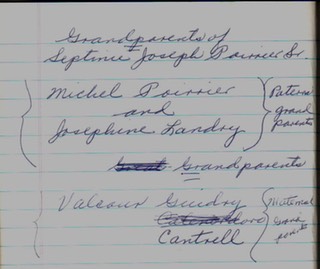 Grandparents of
Septime Joseph Poirrier Sr.
Michel Poirrier
and
Josephine Landry
Paternal
grand
parents
Great Grandparents
Valcour Guidry
Cantrell
Maternal
Grand
parents